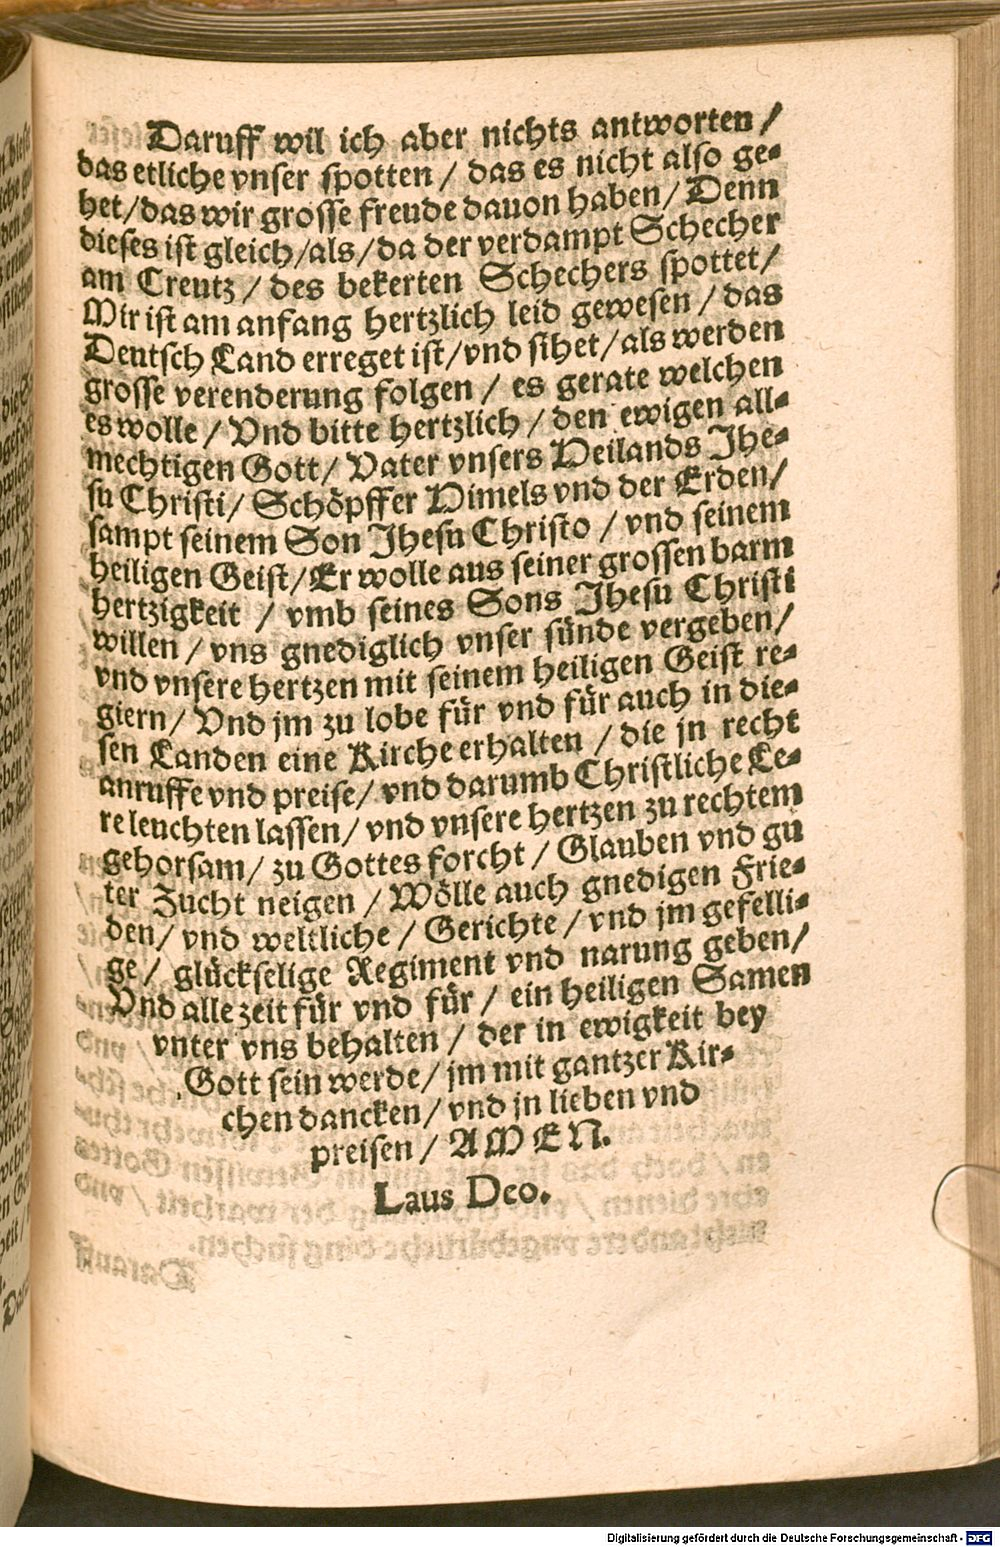 Daruff wil ich aber nichts antworten /
das etliche vnser spotten / das es nicht also ge-
het / das wir grosse freude dauon haben / Denn
dieses ist gleich / als / da der verdampt Schecher
am Creutz / des bekerten Schechers spottet /
Mir ist am anfang hertzlich leid gewesen / das
Deutsch Land erreget ist / vnd sihet / als werden
grosse verenderung folgen / es gerate welchen
es wolle / Vnd bitte hertzlich / den ewigen all-
mechtigen Gott / Vater vnsers Heilands Jhe-
su Christi / Schöpffer Himels vnd der Erden /
sampt seinem Son Jhesu Christo / vnd seinem
heiligen Geist / Er wolle aus seiner grossen barm
hertzigkeit / vmb seines Sons Jhesu Christi
willen / vns gnediglich vnser sünde vergeben /
vnd vnsere hertzen mit seinem heiligen Geist re-
giern / Vnd jm zu lobe für vnd für auch in die-
sen Landen eine Kirche erhalten / die jn recht
anruffe vnd preise / vnd darumb Christliche Le-
re leuchten lassen / vnd vnsere hertzen zu rechtem
gehorsam / zu Gottes forcht / Glauben vnd gu
ter Zucht neigen / Wölle auch gnedigen Frie-
den / vnd weltliche / Gerichte / vnd jm gefelli-
ge / glückselige Regiment vnd narung geben /
Vnd alle zeit für vnd für / ein heiligen Samen
vnter vns behalten / der in ewigkeit bey
Gott sein werde / jm mit gantzer Kir-
chen dancken / vnd jn lieben vnd
preisen / AMEN.
Laus Deo.
Digitalisierung gefördert durch die Deutsche Forschungsgemeinschaft - DFG